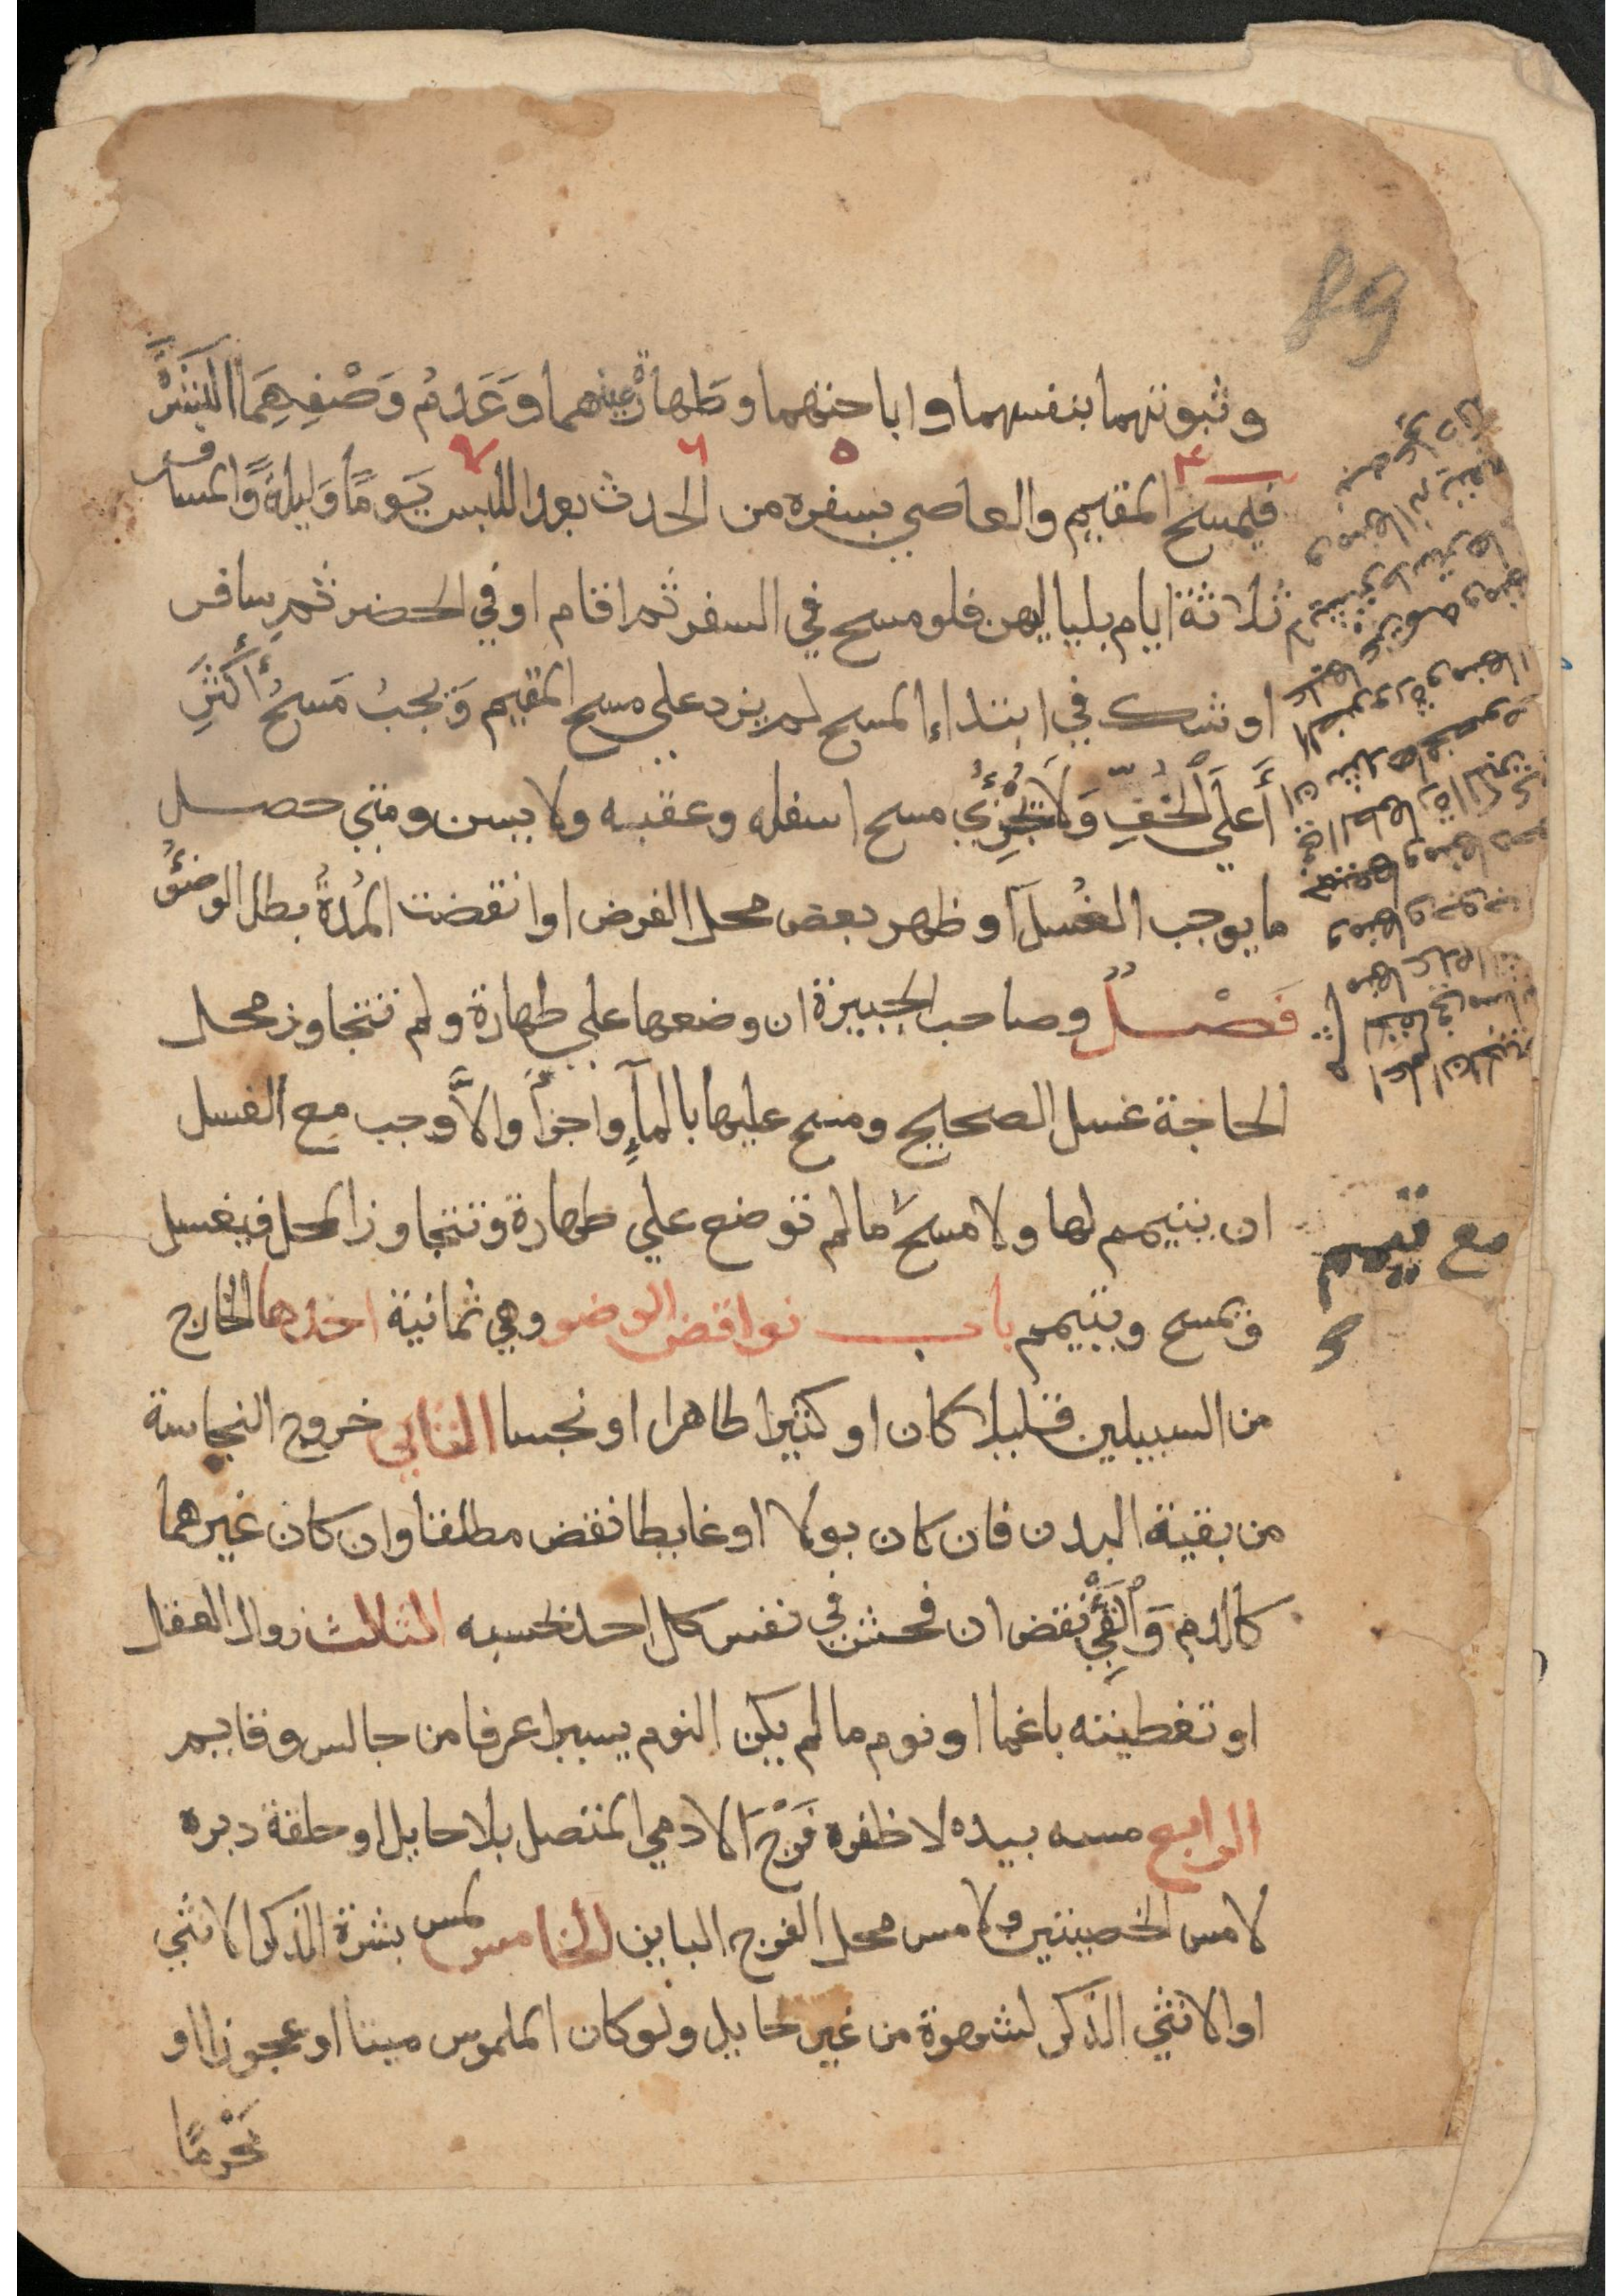 89
وثبوتهما بنفسهما واباحتهما وطهارة عينهما وَعَدَمُ وَصْفِهِمَا البَشَرَةَ
فيمسح المقيم والعاصي بسفره من الحدث بعد اللبس يَومًا وَليلةً وَالمسافر
ثلاثة ايام بلياليهن فلو مسح في السفر ثم اقام او في الحضر ثم سافر
او شك في ابتداء المسح لم يزد على مسح المقيم وَيجبُ مَسحُ أَكثَرِ
أَعلَي الخُفِّ وَلا يُجزِئُ مسح اسفله وعقبه ولا يسن ومتي حصل
ما يوجب الغُسلَ او ظهر بعض محل الفرض او انقضت المُدةُ بطل الوضوُ
فَصْلٌ وصاحب الجبيرة ان وضعها علي طهارة ولم تتجاوز محل
الحاجة غسل الصحيح ومسح عليها بالمآءِ واجزأ والاَّ وجب مع الغسل
ان يتيمم لها ولا مسحَ ما لم توضع علي طهارة وتتجاوز المحل فيغسل
ويمسح ويتيمم باب نواقض الوضو وهي ثمانية احدها الخارج
من السبيلين قليلا كان او كثيرا طاهرا او نجسا الثاني خروج النجاسة
من بقية البدن فان كان بولا او غايطا نقض مطلقا وان كان غيرهما
كالدم وَالقَيْءِ نقض ان فحش في نفس كل احد بحسبه الثالث زوال العقل
او تغطيته باغما او نوم ما لم يكن النوم يسيرا عرفا من جالس وقايم
الرابع مسه بيده لا ظفره فَرْجَ الادمي المتصل بلا حايل او حلقة دبره
لا مس الخصيتين ولا مس محل الفرج الباين الخامس لمس بشرة الذكر الانثي
او الانثي الذكر لشهوة من غير حايل ولو كان الملموس ميتا او عجوزا او
مَحْرمًا